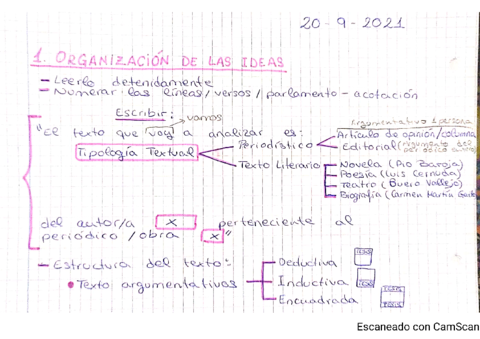 20-9-2021
1. ORGANIZACIÓN DE LAS IDEAS
- Leerlo detenidamente
- Numerar las líneas / versos / parlamento - acotación
Escribir: vamos
Argumentativo 1 persona
"El texto que voy a analizar es:
Artículo de opinión/columna
Periodístico
Editorial (argumento del periódico
Tipología Textual
Texto Literario
Novela (Pío Baroja)
Poesía (Luis Cernuda)
Teatro (Buero Vallejo)
Biografía (Carmen Martín Gaite
del autor/a x perteneciente al
periódico / obra x"
- Estructura del texto:
Deductiva
TESIS
• Texto argumentativos
Inductiva
Encuadrada
TESIS
Escaneado con CamScan